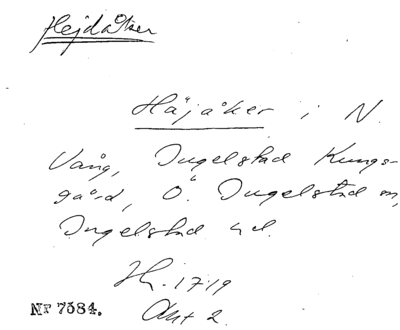 Hejdåker
Häjåker i N.
Vång, Ingelstad Kungs-
gård, Ö. Ingelstad sn,
Ingelstad hd.
Jh. 1719
Akt 2.
Nr 7584.